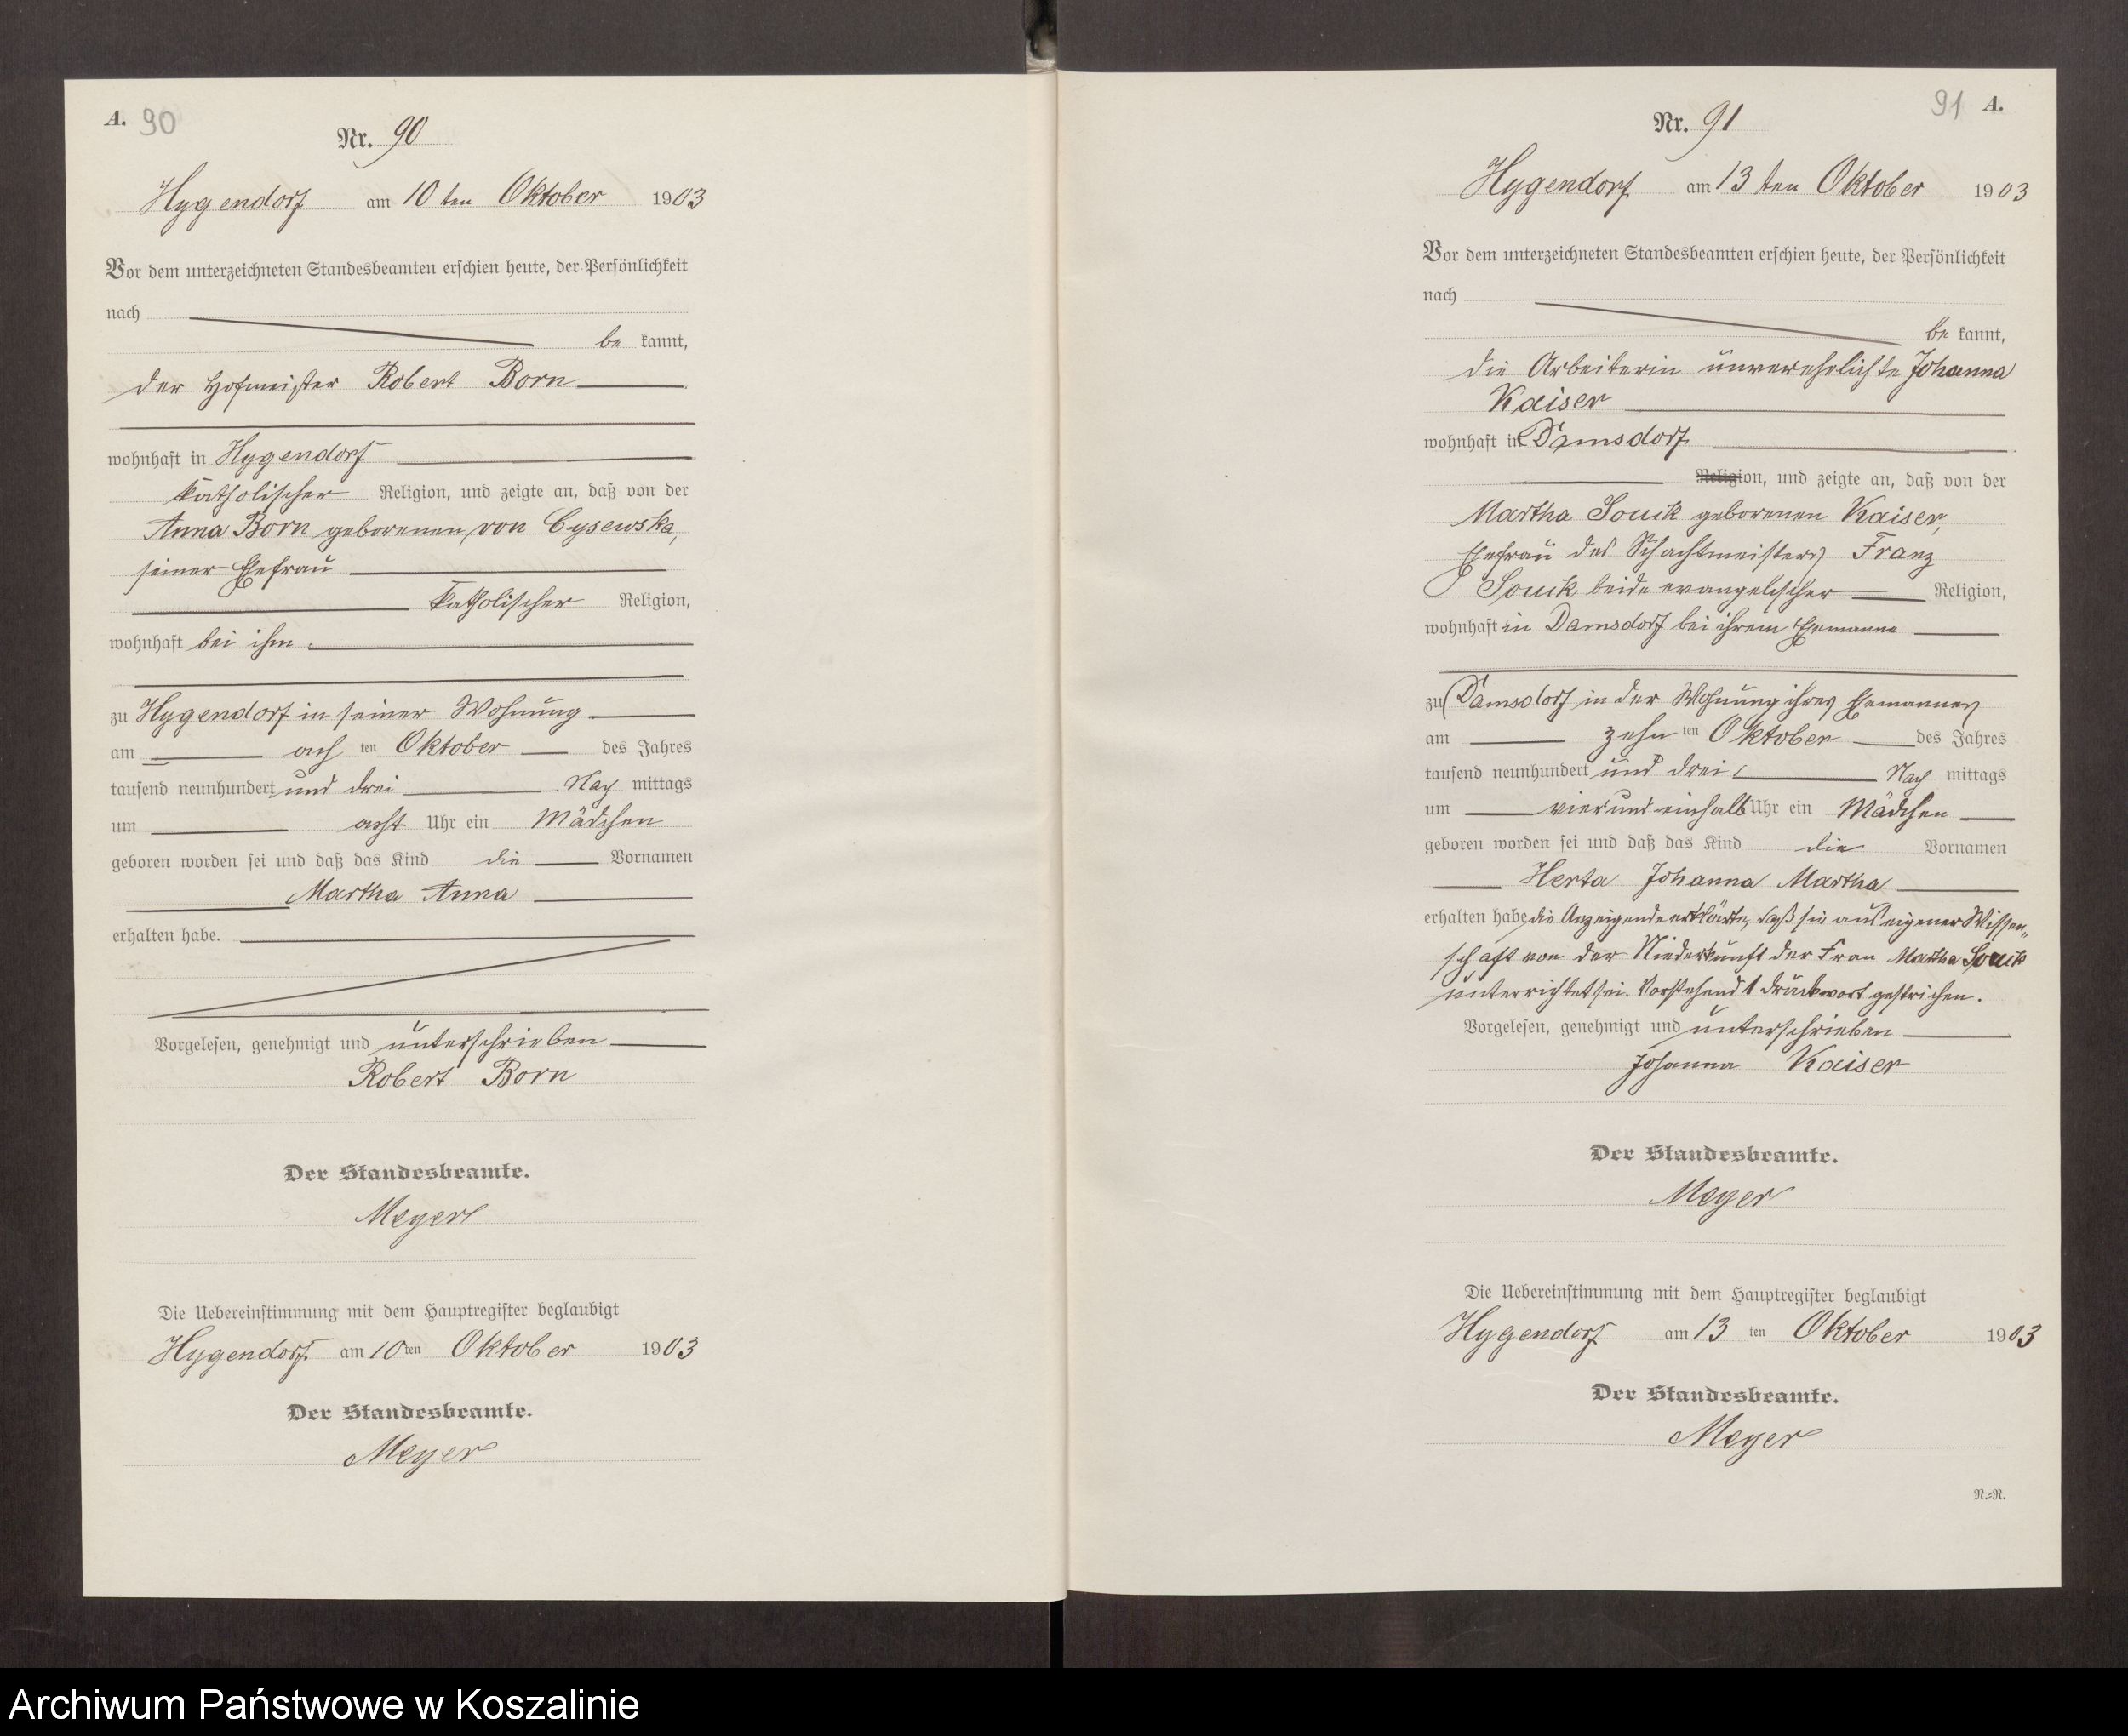 A. 90
Nr. 90
Hygendorf am 10 ten Oktober 1903
Vor dem unterzeichneten Standesbeamten erschien heute, der Persönlichkeit
nach
be kannt,
der Hofmeister Robert Born
wohnhaft in Hygendorf
katholischer Religion, und zeigte an, daß von der
Anna Born geborenen von Cysewska,
seiner Ehefrau
katholischer Religion,
wohnhaft bei ihm
zu Hygendorf in seiner Wohnung
am ach ten Oktober des Jahres
tausend neunhundert und drei Nach mittags
um acht Uhr ein Mädchen
geboren worden sei und daß das Kind die Vornamen
Martha Anna
erhalten habe.
Vorgelesen, genehmigt und unterschrieben
Robert Born
Der Standesbeamte.
Meyer
Die Uebereinstimmung mit dem Hauptregister beglaubigt
Hygendorf am 10 ten Oktober 1903
Der Standesbeamte.
Meyer
91 A.
Nr. 91
Hygendorf am 13 ten Oktober 1903
Vor dem unterzeichneten Standesbeamten erschien heute, der Persönlichkeit
nach
be kannt,
die Arbeiterin unverehelichte Johanna
Kaiser
wohnhaft in Damsdorf
Religion, und zeigte an, daß von der
Martha Souik geborenen Kaiser,
Ehefrau des Schachtmeisters Franz
Souik beide evangelischer Religion,
wohnhaft in Damsdorf bei ihrem Ehemanne
zu Damsdorf in der Wohnung ihres Ehemannes
am zehn ten Oktober des Jahres
tausend neunhundert und drei Nach mittags
um vier und einhalb Uhr ein Mädchen
geboren worden sei und daß das Kind die Vornamen
Herta Johanna Martha
erhalten habe die Anzeigende erklärte, daß sie aus eigener Wissen„
schaft von der Niederkunft der Frau Martha Souik
unterrichtet sei. Vorstehend 1 Druckwort gestrichen.
Vorgelesen, genehmigt und unterschrieben
Johanna Kaiser
Der Standesbeamte.
Meyer
Die Uebereinstimmung mit dem Hauptregister beglaubigt
Hygendorf am 13 ten Oktober 1903
Der Standesbeamte.
Meyer
R.=R.
Archiwum Państwowe w Koszalinie